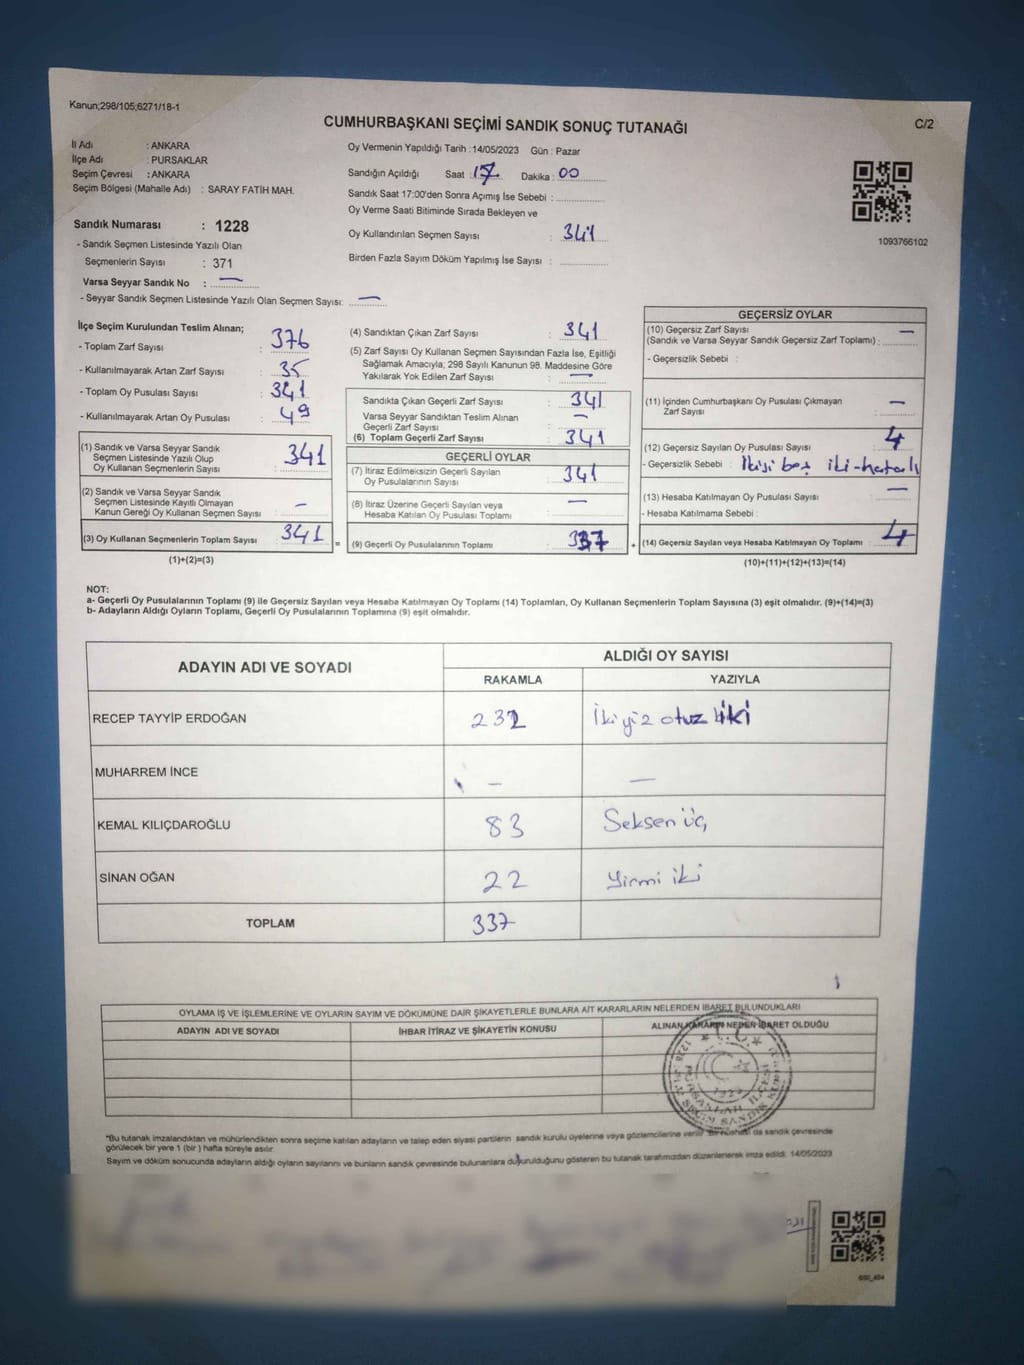 Kanun;298/105;6271/18-1
CUMHURBAŞKANI SEÇİMİ SANDIK SONUÇ TUTANAĞI
C/2
İl Adı : ANKARA
İlçe Adı : PURSAKLAR
Seçim Çevresi : ANKARA
Seçim Bölgesi (Mahalle Adı) : SARAY FATİH MAH.
Sandık Numarası : 1228
- Sandık Seçmen Listesinde Yazılı Olan
Seçmenlerin Sayısı : 371
Varsa Seyyar Sandık No : —
- Seyyar Sandık Seçmen Listesinde Yazılı Olan Seçmen Sayısı: —
Oy Vermenin Yapıldığı Tarih :14/05/2023 Gün : Pazar
Sandığın Açıldığı Saat : 17 Dakika : 00
Sandık Saat 17:00'den Sonra Açımış İse Sebebi :
Oy Verme Saati Bitiminde Sırada Bekleyen ve
Oy Kullandırılan Seçmen Sayısı : 341
Birden Fazla Sayım Döküm Yapılmış İse Sayısı :
1093766102
İlçe Seçim Kurulundan Teslim Alınan;
- Toplam Zarf Sayısı : 376
- Kullanılmayarak Artan Zarf Sayısı : 35
- Toplam Oy Pusulası Sayısı : 341
- Kullanılmayarak Artan Oy Pusulası : 49
(1) Sandık ve Varsa Seyyar Sandık
Seçmen Listesinde Yazılı Olup
Oy Kullanan Seçmenlerin Sayısı : 341
(2) Sandık ve Varsa Seyyar Sandık
Seçmen Listesinde Kayıtlı Olmayan
Kanun Gereği Oy Kullanan Seçmen Sayısı : —
(3) Oy Kullanan Seçmenlerin Toplam Sayısı : 341
(1)+(2)=(3)
=
(4) Sandıktan Çıkan Zarf Sayısı : 341
(5) Zarf Sayısı Oy Kullanan Seçmen Sayısından Fazla İse, Eşitliği
Sağlamak Amacıyla; 298 Sayılı Kanunun 98. Maddesine Göre
Yakılarak Yok Edilen Zarf Sayısı : —
Sandıkta Çıkan Geçerli Zarf Sayısı : 341
Varsa Seyyar Sandıktan Teslim Alınan
Geçerli Zarf Sayısı : —
(6) Toplam Geçerli Zarf Sayısı : 341
GEÇERLİ OYLAR
(7) İtiraz Edilmeksizin Geçerli Sayılan
Oy Pusulalarının Sayısı : 341
(8) İtiraz Üzerine Geçerli Sayılan veya
Hesaba Katılan Oy Pusulası Toplamı : —
(9) Geçerli Oy Pusulalarının Toplamı : 337
+
GEÇERSİZ OYLAR
(10) Geçersiz Zarf Sayısı
(Sandık ve Varsa Seyyar Sandık Geçersiz Zarf Toplamı) : —
- Geçersizlik Sebebi :
(11) İçinden Cumhurbaşkanı Oy Pusulası Çıkmayan
Zarf Sayısı : —
(12) Geçersiz Sayılan Oy Pusulası Sayısı : 4
- Geçersizlik Sebebi : İkisi boş iki-hatalı
(13) Hesaba Katılmayan Oy Pusulası Sayısı : —
- Hesaba Katılmama Sebebi :
(14) Geçersiz Sayılan veya Hesaba Katılmayan Oy Toplamı : 4
(10)+(11)+(12)+(13)=(14)
NOT:
a- Geçerli Oy Pusulalarının Toplamı (9) ile Geçersiz Sayılan veya Hesaba Katılmayan Oy Toplamı (14) Toplamları, Oy Kullanan Seçmenlerin Toplam Sayısına (3) eşit olmalıdır. (9)+(14)=(3)
b- Adayların Aldığı Oyların Toplamı, Geçerli Oy Pusulalarının Toplamına (9) eşit olmalıdır.
ADAYIN ADI VE SOYADI
ALDIĞI OY SAYISI
RAKAMLA YAZIYLA
RECEP TAYYİP ERDOĞAN 232 İkiyüz otuz iki
MUHARREM İNCE — —
KEMAL KILIÇDAROĞLU 83 Seksen üç
SİNAN OĞAN 22 Yirmi iki
TOPLAM 337
OYLAMA İŞ VE İŞLEMLERİNE VE OYLARIN SAYIM VE DÖKÜMÜNE DAİR ŞİKAYETLERLE BUNLARA AİT KARARLARIN NELERDEN İBARET BULUNDUKLARI
ADAYIN ADI VE SOYADI İHBAR İTİRAZ VE ŞİKAYETİN KONUSU ALINAN KARARIN NEDEN İBARET OLDUĞU
T.C.
*Bu tutanak imzalandıktan ve mühürlendikten sonra seçime katılan adayların ve talep eden siyasi partilerin sandık kurulu üyelerine veya gözlemcilerine verilir. Bir nüshası da sandık çevresinde
görülecek bir yere 1 (bir ) hafta süreyle asılır.
Sayım ve döküm sonucunda adayların aldığı oyların sayılarını ve bunların sandık çevresinde bulunanlara duyurulduğunu gösteren bu tutanak tarafımızdan düzenlenerek imza edildi. 14/05/2023